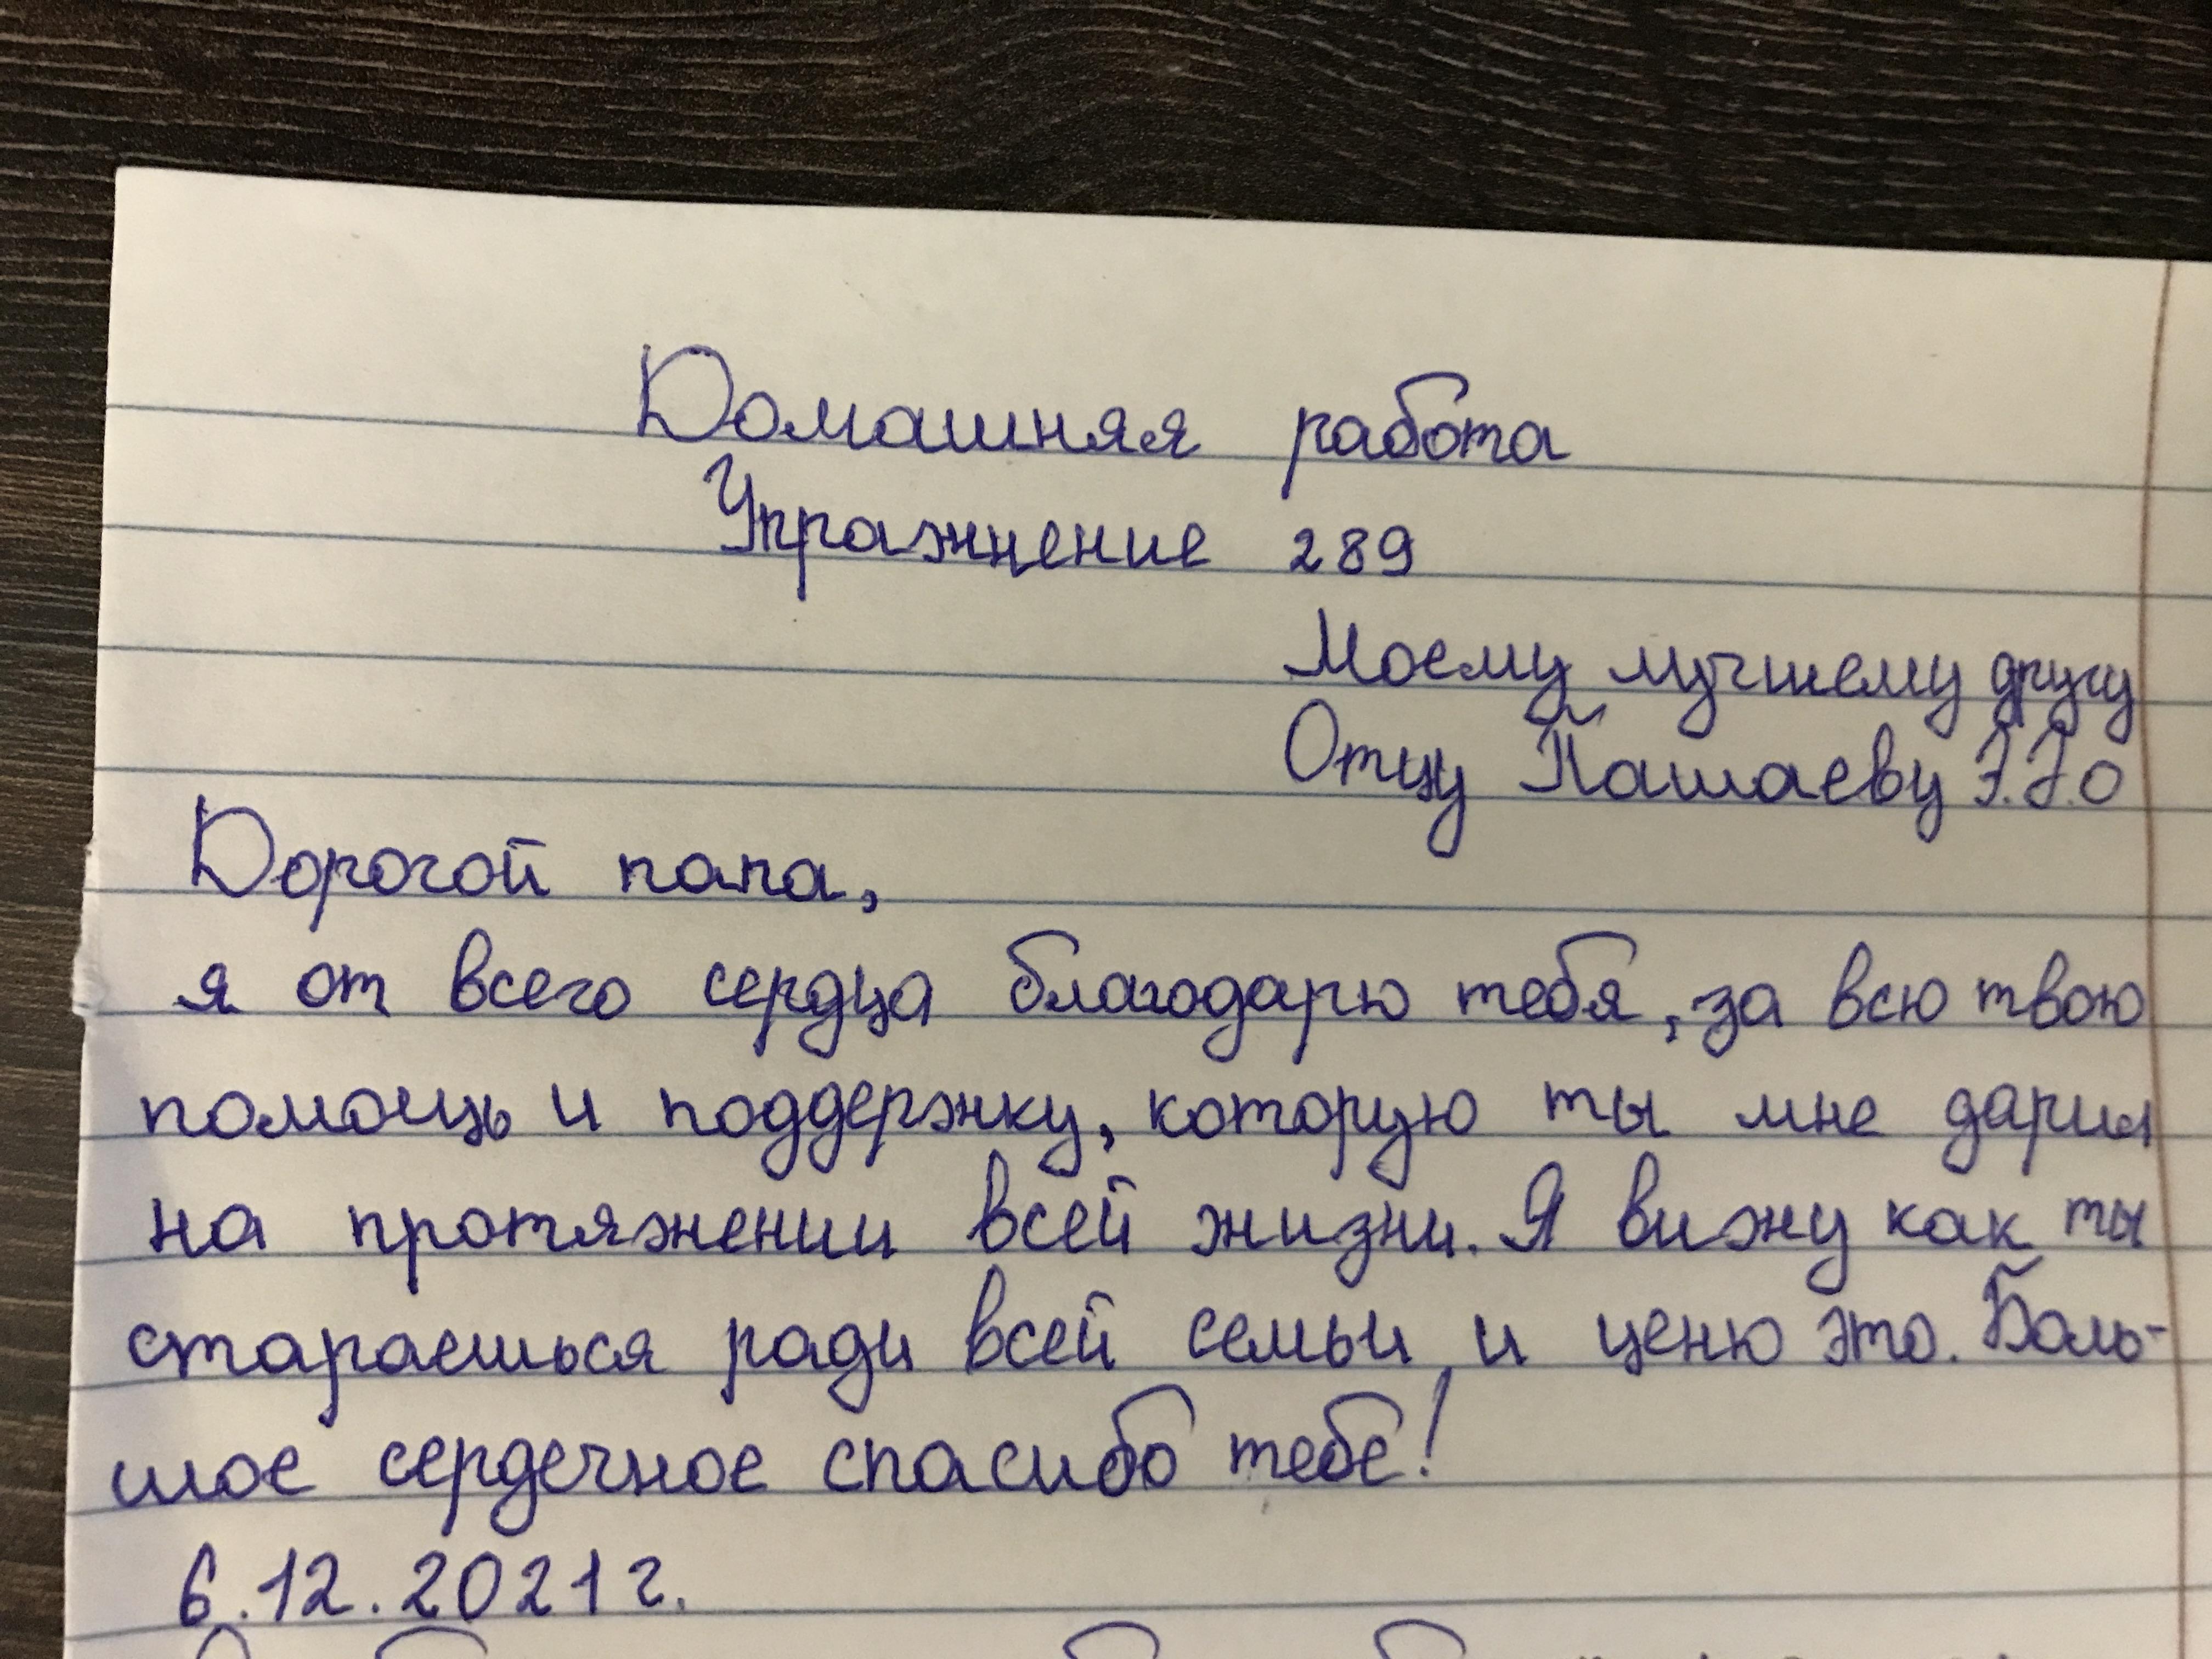 Домашняя работа
Упражнение 289
Моему лучшему другу
Отцу Пашаеву Э.Э.О
Дорогой папа,
я от всего сердца благодарю тебя, за всю твою
помощь и поддержку, которую ты мне дарил
на протяжении всей жизни. Я вижу как ты
стараешься ради всей семьи, и ценю это. Боль-
шое сердечное спасибо тебе!
6.12.2021 г.